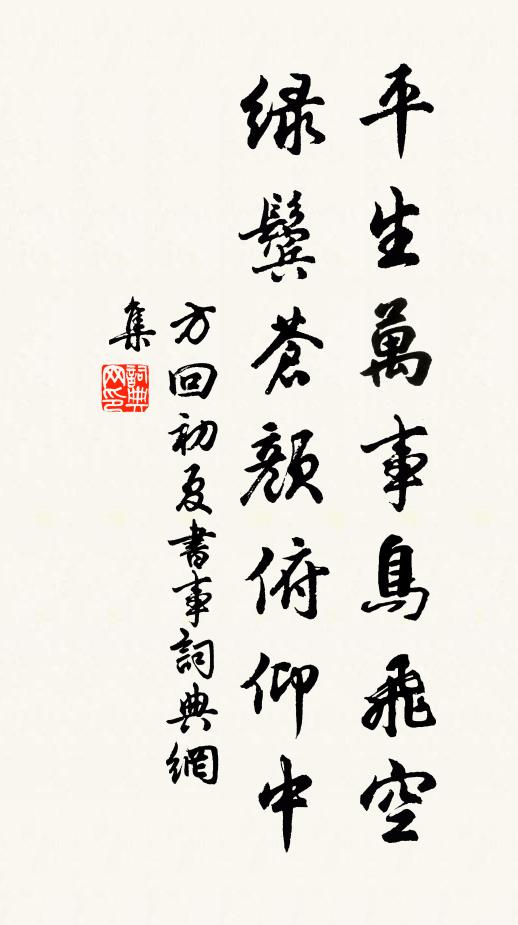 平生萬事鳥飛空
緑鬓蒼顔俯仰中
方回初夏書事詞典網
集
詞典
网印